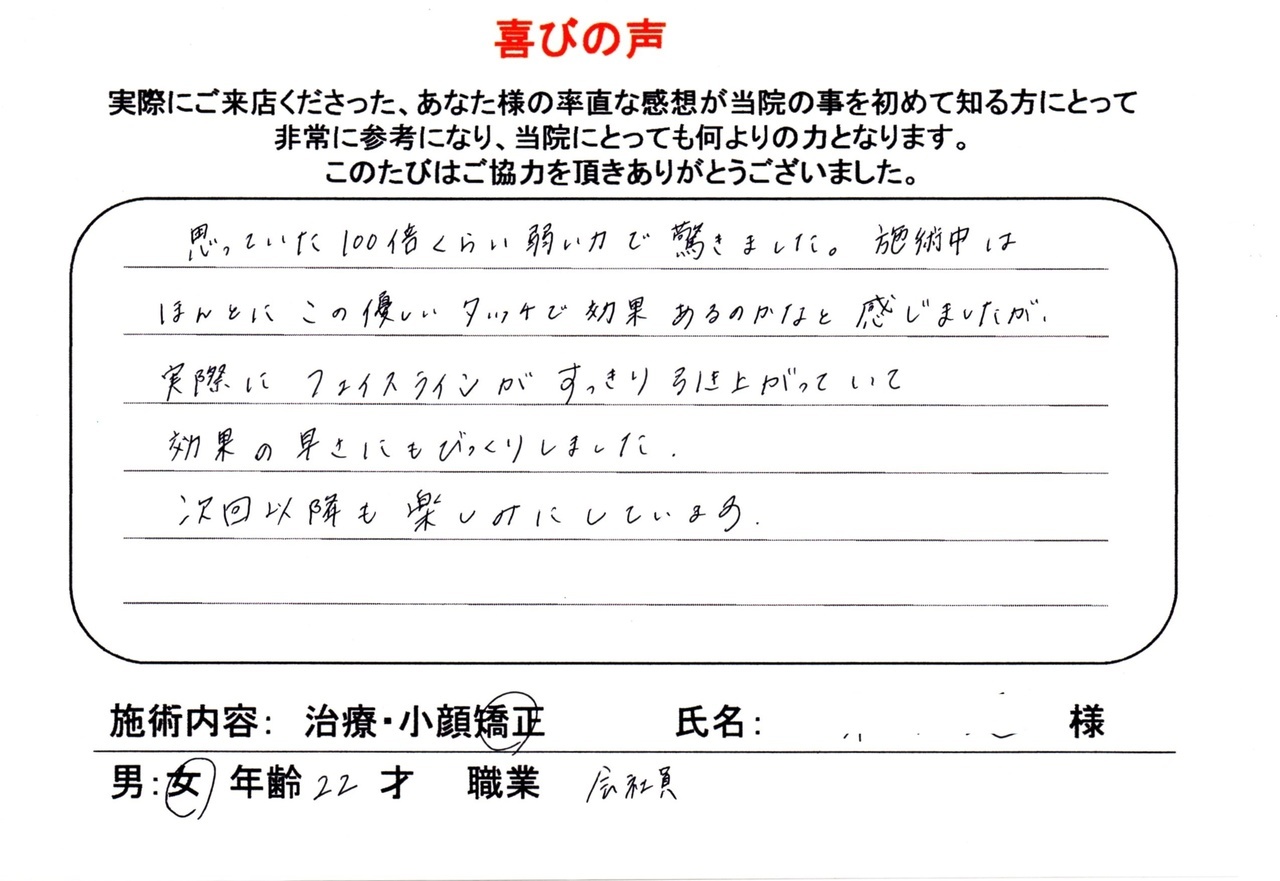 喜びの声
実際にご来店くださった、あなた様の率直な感想が当院の事を初めて知る方にとって
非常に参考になり、当院にとっても何よりの力となります。
このたびはご協力を頂きありがとうございました。
思っていた100倍くらい弱い力で驚きました。施術中は
ほんとにこの優しいタッチで効果あるのかなと感じましたが、
実際にフェイスラインがすっきり引き上がっていて
効果の早さにもびっくりしました.
次回以降も楽しみにしています.
施術内容： 治療・小顔矯正 氏名： 様
男：女 年齢 22 才 職業 会社員